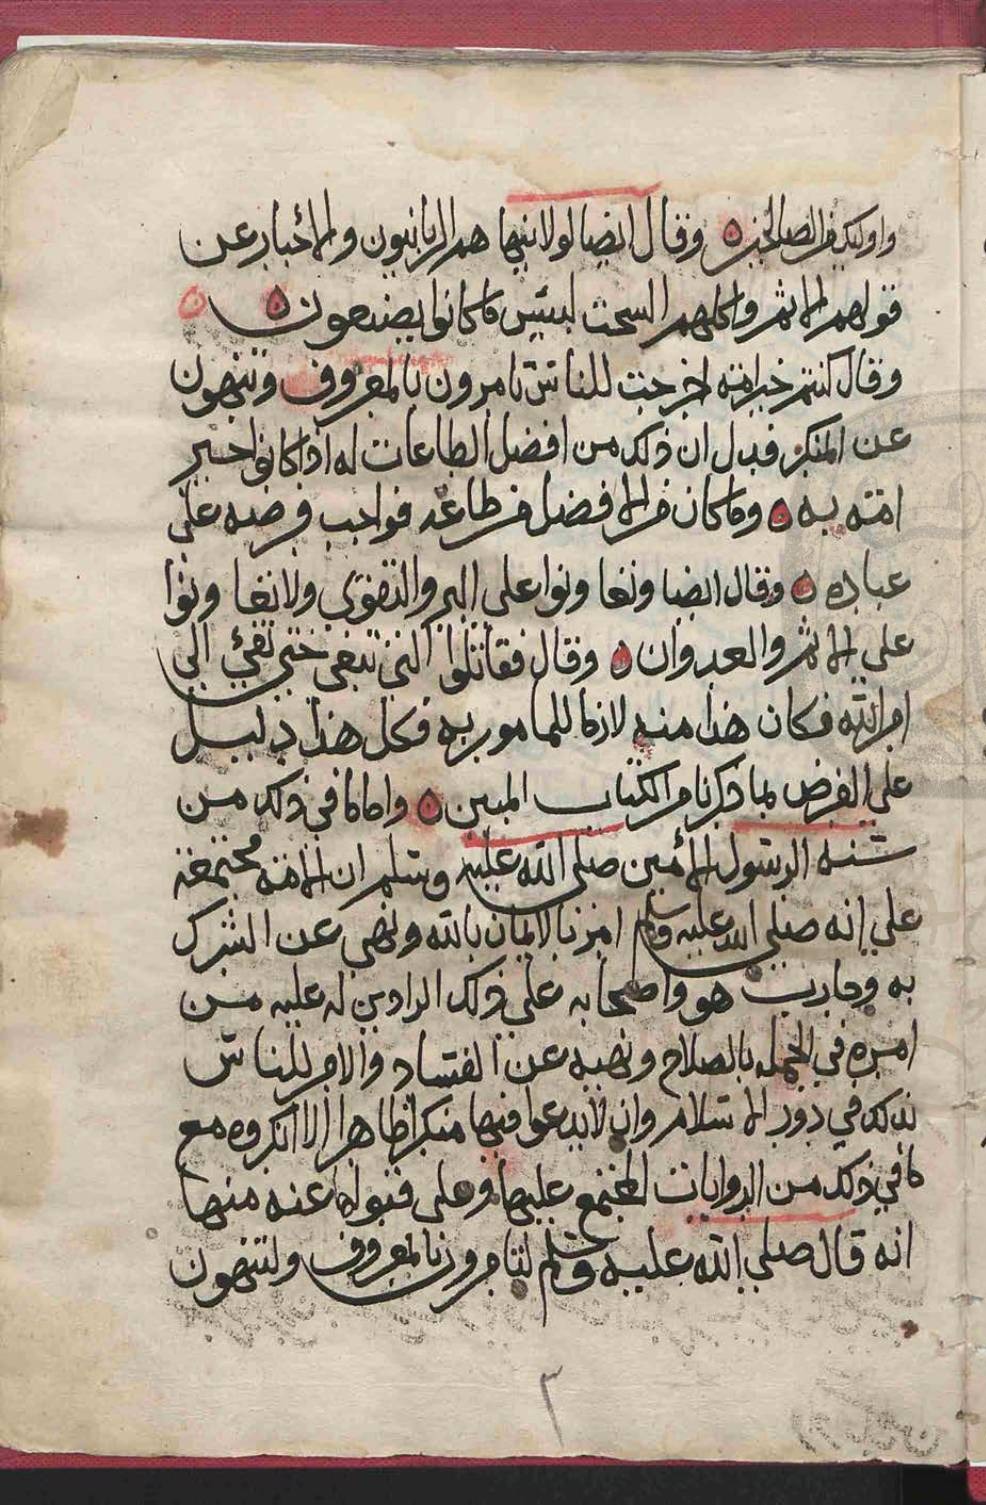 واولئك من الصالحين ه وقال ايضا لولا ينهاهم الربانيون والأحبار عن
قولهم الاثم واكلهم السحت لبئس ما كانوا يصنعون ه ه
وقال كنتم خير امة اخرجت للناس تامرون بالمعروف وتنهون
عن المنكر فدل ان ذلك من افضل الطاعات له اذ كانوا خير
امته به ه وما كان من الافضل من طاعته فواجب فرضه على
عباده ه وقال ايضا وتعاونوا على البر والتقوى ولا تعاونوا
على الاثم والعدوان ه وقال فقاتلوا التي تبغي حتى تفيء الى
امر الله فكان هذا منه لازما للمامور به فكل هذا دليل
على الفرض بما ذكرنا من الكتاب المبين ه واما ما في ذلك من
سنه الرسول الأمين صلى الله عليه وسلم ان الامة مجتمعة
على انه صلى الله عليه وسلم امرنا بالايمان بالله ونهى عن الشرك
به وحارب هو واصحابه على ذلك الرادين له عليه من
امره في الجمله بالصلاح ونهيه عن الفساد والامر للناس
بذلك في دور الاسلام وان لا يدعوا فيها منكرا ظاهرا الا انكروه مع
ما في ذلك من الروايات المجتمع عليها وعلى قبولها عنه منها
انه قال صلى الله عليه وسلم لتامرون بالمعروف ولتنهون
٣